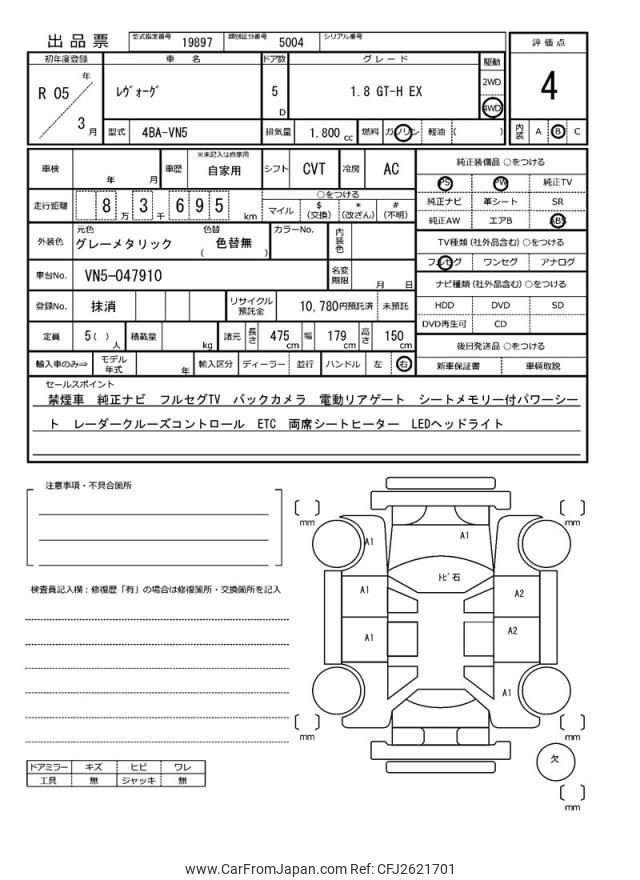 出品票 型式指定番号 19897 類別区分番号 5004 シリアル番号
初年度登録 車名 ドア数 グレード 駆動 評価点
R 05 年 3 月 ﾚｳﾞｫｰｸﾞ 5 D 1.8 GT-H EX 2WD 4WD 4
型式 4BA-VN5 排気量 1,800 cc 燃料 ガソリン 軽油 ( ) 内装 A B C
車検 年 月 車歴 ※未記入は自家用 自家用 シフト CVT 冷房 AC
走行距離 8 万 3 千 6 9 5 km
○をつける
マイル $ (交換) * (改ざん) # (不明)
外装色 元色 グレーメタリック 色替 ( 色替無 ) カラーNo. 内装色
車台No. VN5-047910 名変期限 月 日
登録No. 抹消 リサイクル預託金 10,780 円預託済 未預託
定員 5 ( ) 人 積載量 kg 諸元 長さ 475 cm 幅 179 cm 高さ 150 cm
輸入車のみ⇒ モデル年式 年 輸入区分 ディーラー 並行 ハンドル 左 右
純正装備品 ○をつける
PS PW 純正TV
純正ナビ 革シート SR
純正AW エアB ABS
TV種類 (社外品含む) ○をつける
フルセグ ワンセグ アナログ
ナビ種類 (社外品含む) ○をつける
HDD DVD SD
DVD再生可 CD
後日発送品 ○をつける
新車保証書 車輌取説
セールスポイント
禁煙車 純正ナビ フルセグTV バックカメラ 電動リアゲート シートメモリー付パワーシー
ト レーダークルーズコントロール ETC 両席シートヒーター LEDヘッドライト
注意事項・不具合箇所
検査員記入欄：修復歴「有」の場合は修復箇所・交換箇所を記入
ドアミラー キズ ヒビ ワレ
工具 無 ジャッキ 無
mm mm
A1 A1
ﾄﾋﾞ石
A1 A2
A1 A2
A1
mm mm
欠
mm
www.CarFromJapan.com Ref: CFJ2621701